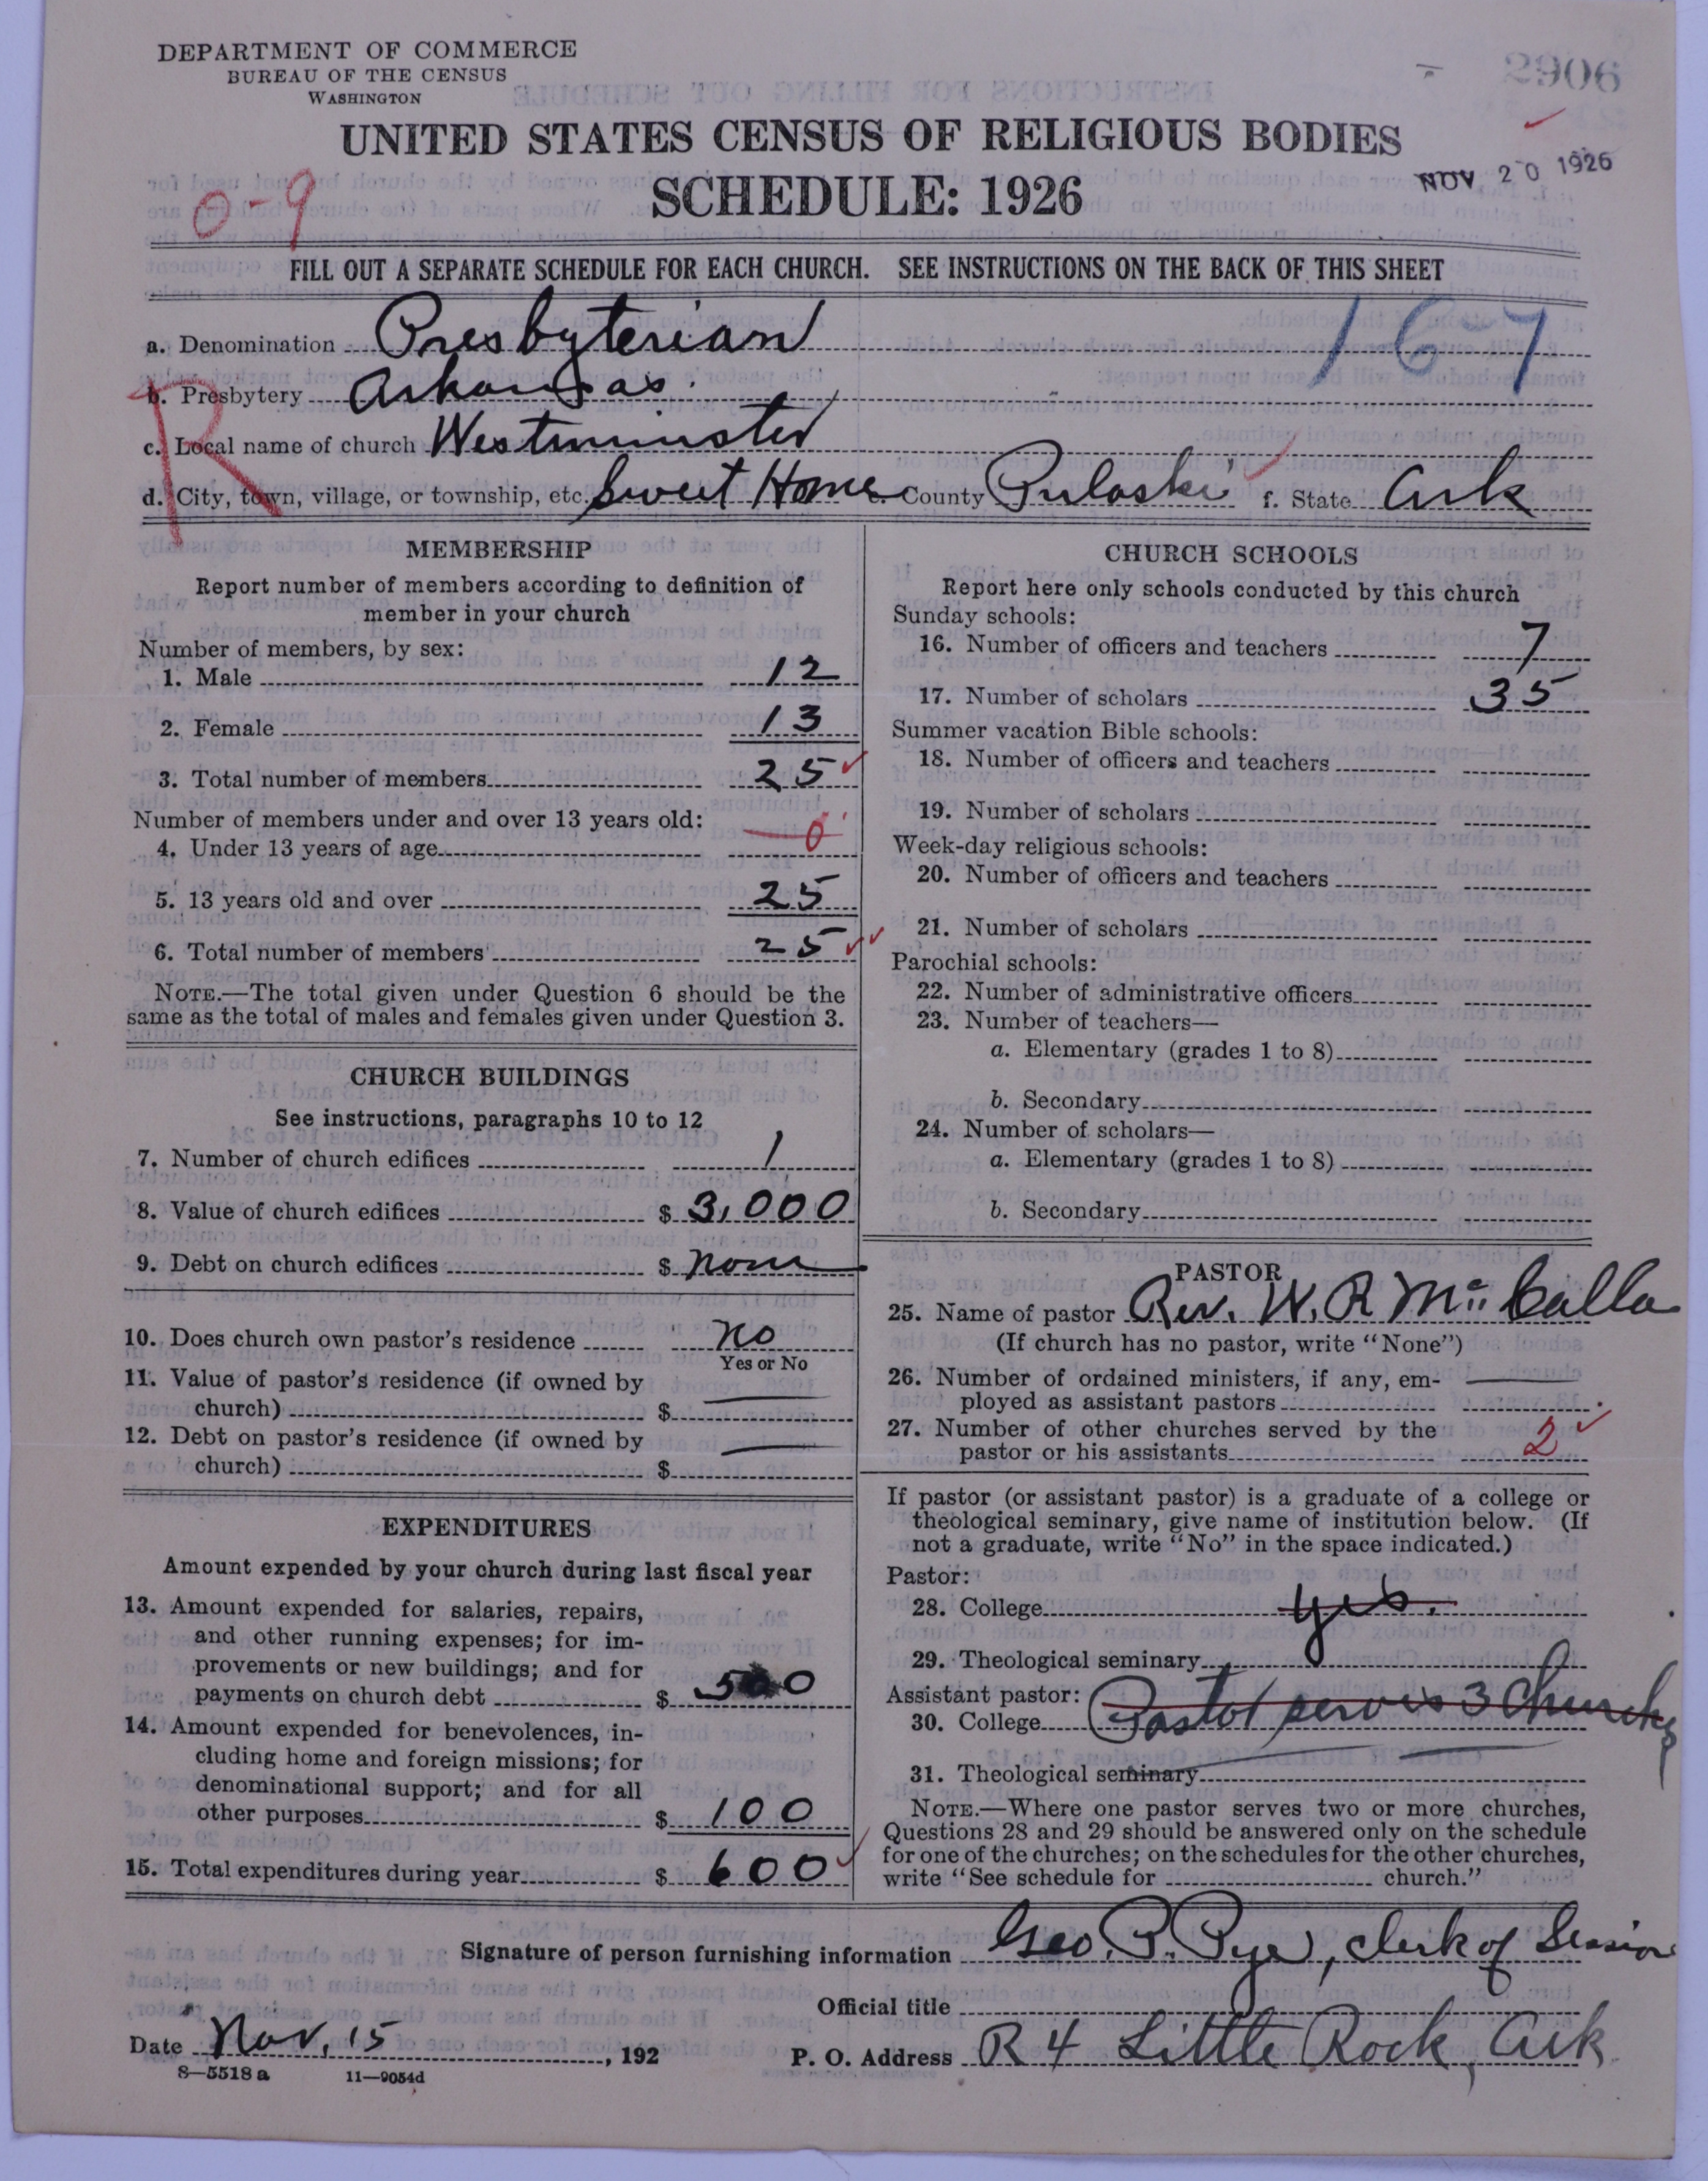 DEPARTMENT OF COMMERCE
BUREAU OF THE CENSUS
WASHINGTON
2906
UNITED STATES CENSUS OF RELIGIOUS BODIES
SCHEDULE: 1926
NOV 20 1926
0-9
FILL OUT A SEPARATE SCHEDULE FOR EACH CHURCH. SEE INSTRUCTIONS ON THE BACK OF THIS SHEET
167
a. Denomination Presbyterian
b. Presbytery Arkansas.
R
c. Local name of church Westminster
d. City, town, village, or township, etc. Sweet Home e. County Pulaski f. State Ark
MEMBERSHIP
Report number of members according to definition of
member in your church
Number of members, by sex:
1. Male 12
2. Female 13
3. Total number of members 25
Number of members under and over 13 years old:
4. Under 13 years of age 0
5. 13 years old and over 25
6. Total number of members 25
NOTE.—The total given under Question 6 should be the
same as the total of males and females given under Question 3.
CHURCH BUILDINGS
See instructions, paragraphs 10 to 12
7. Number of church edifices 1
8. Value of church edifices $ 3,000
9. Debt on church edifices $ None
10. Does church own pastor's residence no
Yes or No
11. Value of pastor's residence (if owned by
church) $
12. Debt on pastor's residence (if owned by
church) $
EXPENDITURES
Amount expended by your church during last fiscal year
13. Amount expended for salaries, repairs,
and other running expenses; for im-
provements or new buildings; and for
payments on church debt $ 500
14. Amount expended for benevolences, in-
cluding home and foreign missions; for
denominational support; and for all
other purposes $ 100
15. Total expenditures during year $ 600
CHURCH SCHOOLS
Report here only schools conducted by this church
Sunday schools:
16. Number of officers and teachers 7
17. Number of scholars 35
Summer vacation Bible schools:
18. Number of officers and teachers
19. Number of scholars
Week-day religious schools:
20. Number of officers and teachers
21. Number of scholars
Parochial schools:
22. Number of administrative officers
23. Number of teachers—
a. Elementary (grades 1 to 8)
b. Secondary
24. Number of scholars—
a. Elementary (grades 1 to 8)
b. Secondary
PASTOR
25. Name of pastor Rev. W. R. McCalla
(If church has no pastor, write "None")
26. Number of ordained ministers, if any, em-
ployed as assistant pastors
27. Number of other churches served by the
pastor or his assistants 2
If pastor (or assistant pastor) is a graduate of a college or
theological seminary, give name of institution below. (If
not a graduate, write "No" in the space indicated.)
Pastor:
28. College yes.
29. Theological seminary
Assistant pastor:
30. College Pastor serves 3 Churches
31. Theological seminary
NOTE.—Where one pastor serves two or more churches,
Questions 28 and 29 should be answered only on the schedule
for one of the churches; on the schedules for the other churches,
write "See schedule for church."
Signature of person furnishing information Geo. P. Pye, clerk of Session
Official title
Date Nov, 15, 192
P. O. Address R 4 Little Rock, Ark
8—5518a 11—9054d